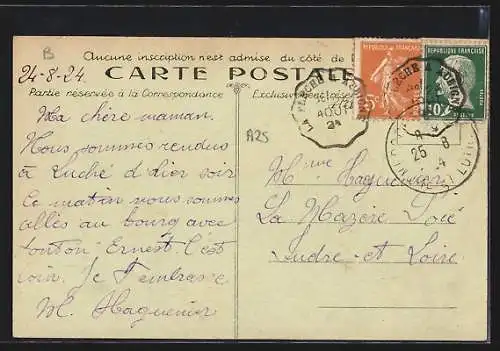 B
Aucune inscription n'est admise du côté de
24-8-24.
CARTE POSTALE
Partie réservée à la Correspondance
Exclusivement
RÉPUBLIQUE FRANÇAISE
5c
RÉPUBLIQUE FRANÇAISE
10c
AOUT
24
25 -8
A25
Ma chère maman.
Nous sommes rendus
à Luché d'hier soir
Ce matin nous sommes
allés au bourg avec
tonton Ernest. C'est
loin. Je t'embrasse
M. Haguenier
Mme Haguenier
La Mazère
Indre-et Loire